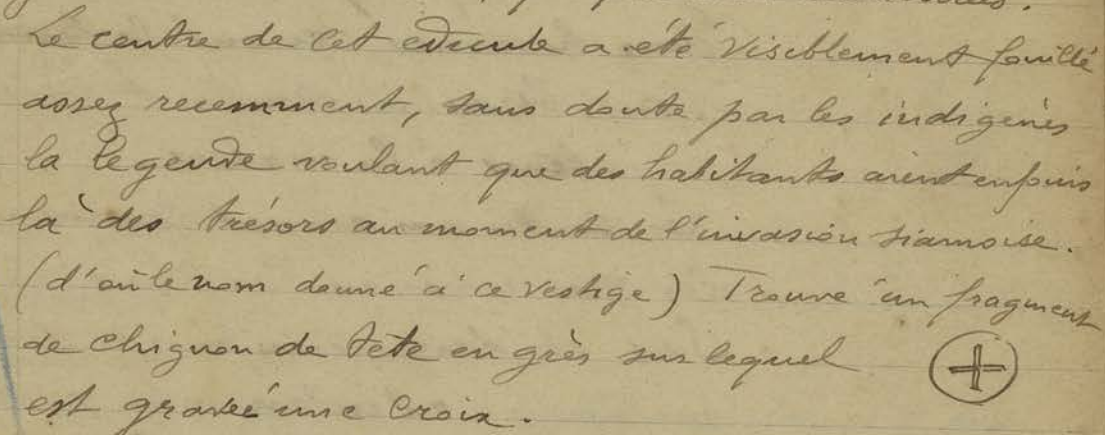 Le centre de cet édicule a été visiblement fouillé
assez recemment, sans doute par les indigènes
la légende voulant que des habitants aient enfouis
là des trésors au moment de l'invasion siamoise.
(d'où le nom donné à ce vestige) Trouvé un fragment
de chignon de tête en grès sur lequel
est gravée une croix.